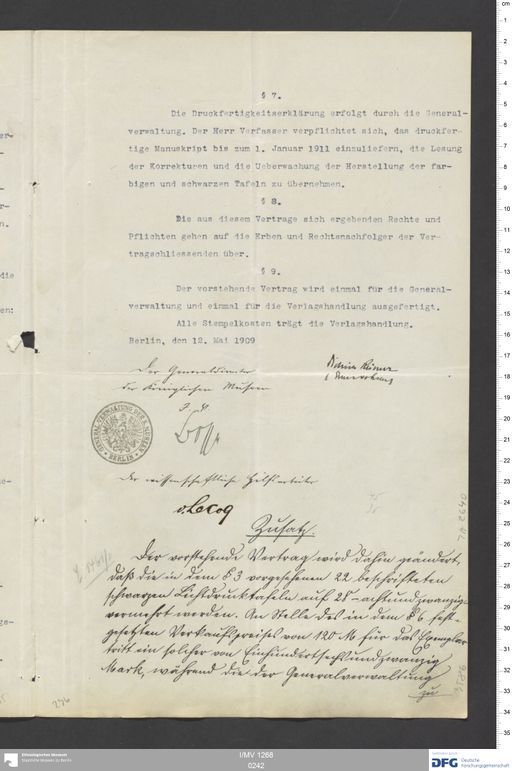 § 7.
Die Druckfertigkeitserklärung erfolgt durch die General-
verwaltung. Der Herr Verfasser verpflichtet sich, das druckfer-
tige Manuskript bis zum 1. Januar 1911 einzuliefern, die Lesung
der Korrekturen und die Ueberwachung der Herstellung der far-
bigen und schwarzen Tafeln zu übernehmen.
§ 8.
Die aus diesem Vertrage sich ergebenden Rechte und
Pflichten gehen auf die Erben und Rechtsnachfolger der Ver-
tragschliessenden über.
§ 9.
Der vorstehende Vertrag wird einmal für die General-
verwaltung und einmal für die Verlagshandlung ausgefertigt.
Alle Stempelkosten trägt die Verlagshandlung.
Berlin, den 12. Mai 1909
Der Generaldirektor
der Königlichen Museen
Dietrich Reimer
GENERAL-VERWALTUNG DER K. MUSEEN
BERLIN
Der wissenschaftliche Hilfsarbeiter
v. Lecoq
Zusatz.
Der vorstehende Vertrag wird dahin geändert,
daß die in dem § 3 vorgesehenen 22 beschrifteten
schwarzen Lichtdrucktafeln auf 28 - achtundzwanzig -
vermehrt werden. An Stelle des in dem § 6 fest-
gesetzten Verkaufspreises von 120 M für das Exemplar
tritt ein solcher von Einhundertsechsundzwanzig
Mark, während die der Generalverwaltung
zu
236
Ethnologisches Museum
Staatliche Museen zu Berlin
I/MV 1268
0242
DFG
Deutsche
Forschungsgemeinschaft